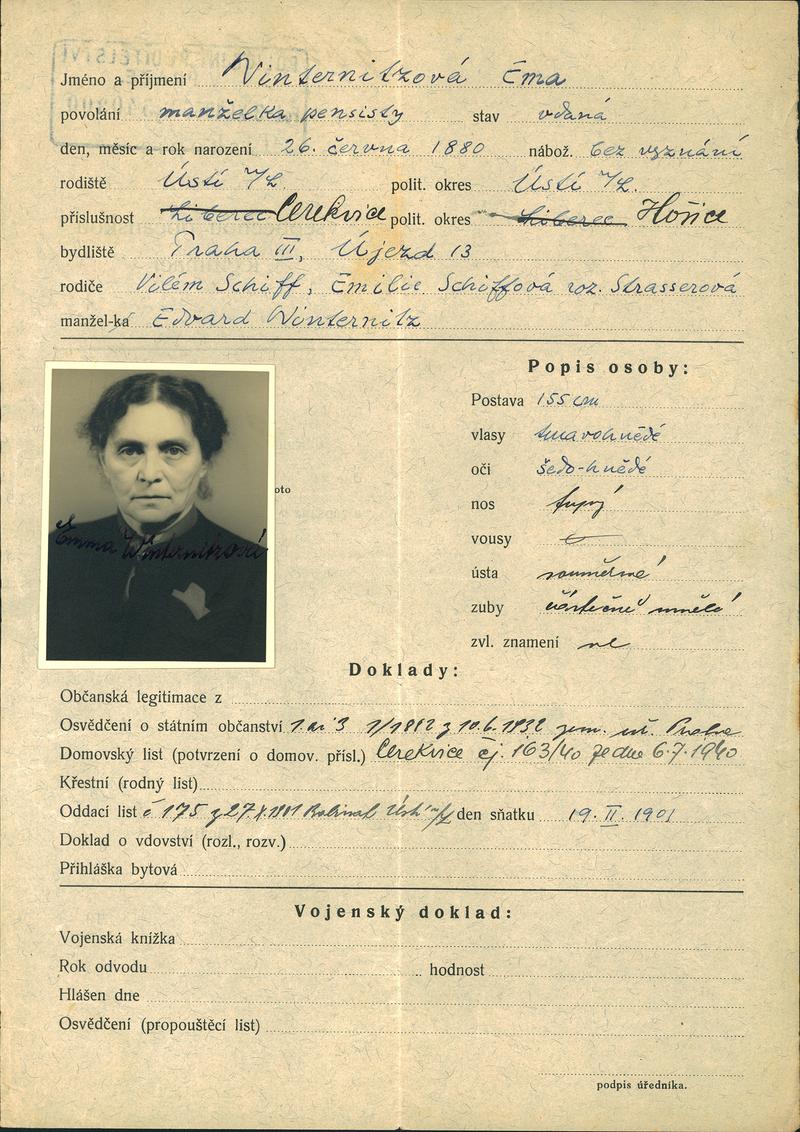 Jméno a příjmení Winternitzová Ema
povolání manželka pensisty stav vdaná
den, měsíc a rok narození 26. června 1880 nábož. bez vyznání
rodiště Ústí n/L. polit. okres Ústí n/L.
příslušnost Liberec Cerekvice polit. okres Liberec Hořice
bydliště Praha III, Újezd 13
rodiče Vilém Schiff, Emilie Schiffová roz. Strasserová
manžel-ka Edvard Winternitz
Popis osoby:
Postava 155 cm
vlasy tmavohnědé
oči šedo-hnědé
oto
nos tupý
vousy
Emma Winternitzová
ústa souměrné
zuby částečně umělé
zvl. znamení ne
Doklady:
Občanská legitimace z
Osvědčení o státním občanství z 10.6.1932 zem. úř. Praha
Domovský list (potvrzení o domov. přísl.) Cerekvice čj. 163/40 ze dne 6.7.1940
Křestní (rodný list)
Oddací list č 175 z 27 Ústí n/L den sňatku 19. II. 1901
Doklad o vdovství (rozl., rozv.)
Přihláška bytová
Vojenský doklad:
Vojenská knížka
Rok odvodu hodnost
Hlášen dne
Osvědčení (propouštěcí list)
podpis úředníka.